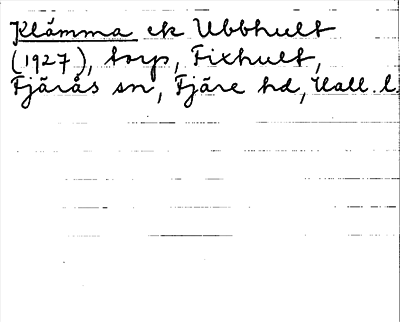 Klämma ek Ubbhult
(1927), torp, Fixhult,
Fjärås sn, Fjäre hd, Hall. l.